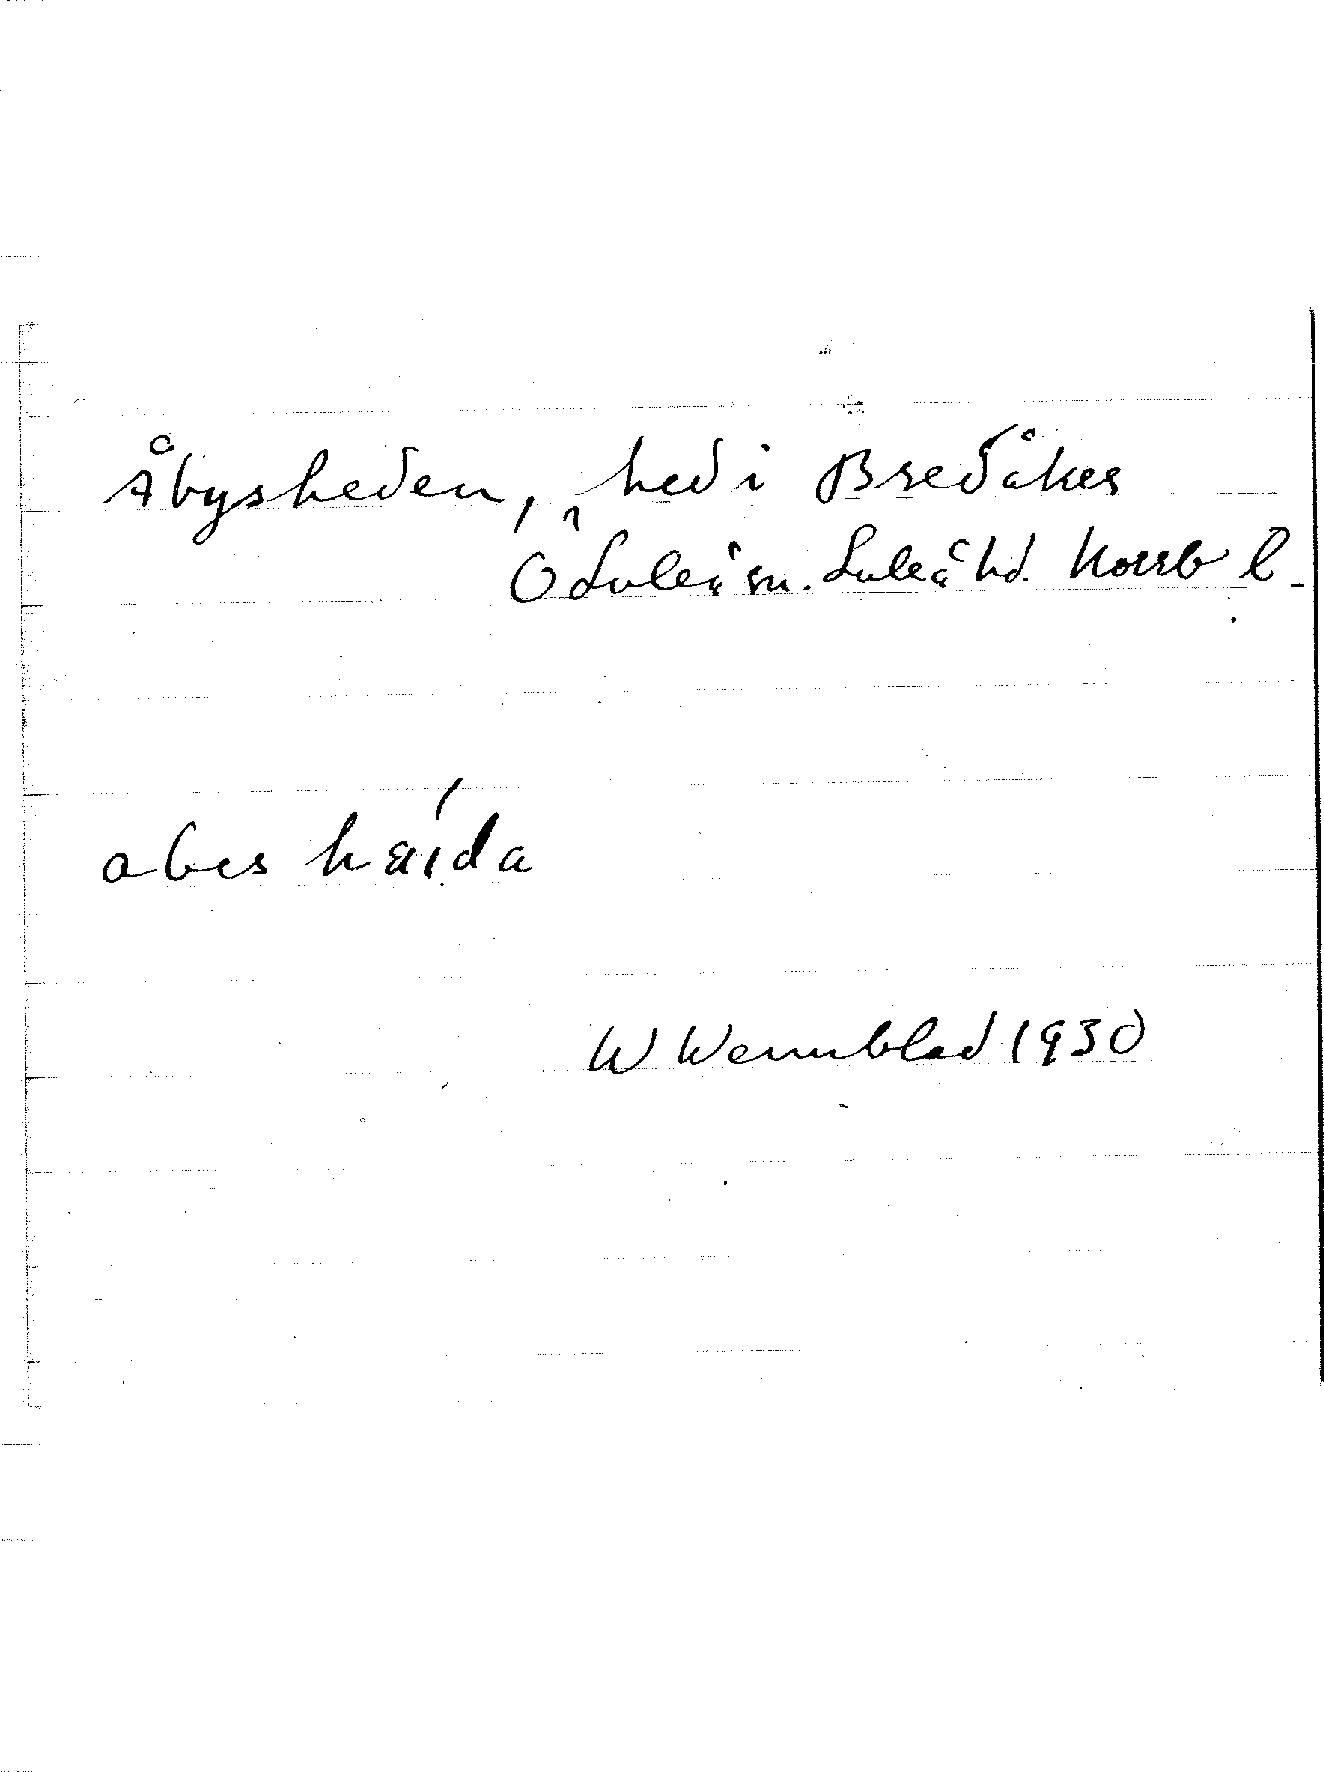 Åbysheden, hed i Bredåker
Ö Luleå sn. Luleå hd. Norrb l.
abes hæida
W Wennblad 1930